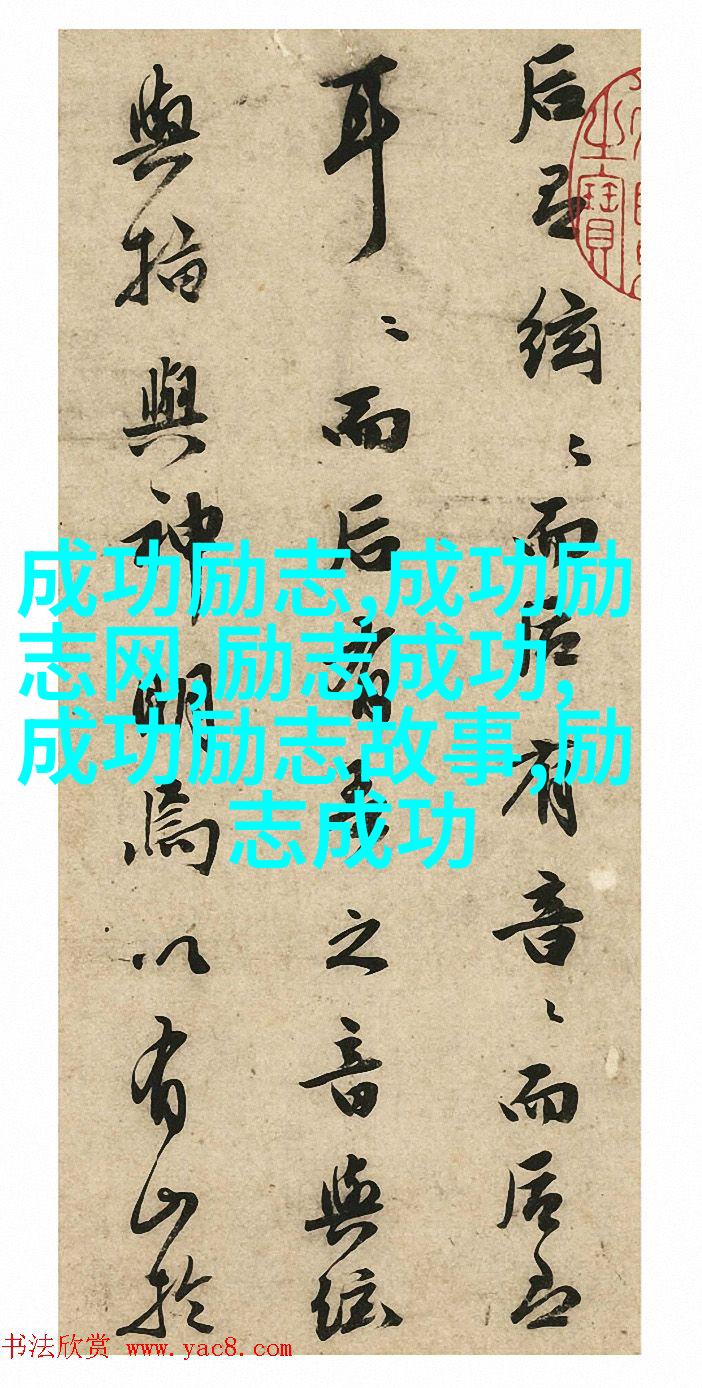 后
絃〻而后有音〻而后
耳〻而后有
之音與絃
與指與神明焉以有山於
之寶
成功励志,成功励
志网,励志成功,
成功励志故事,励
志成功
书法欣赏 www.yac8.com